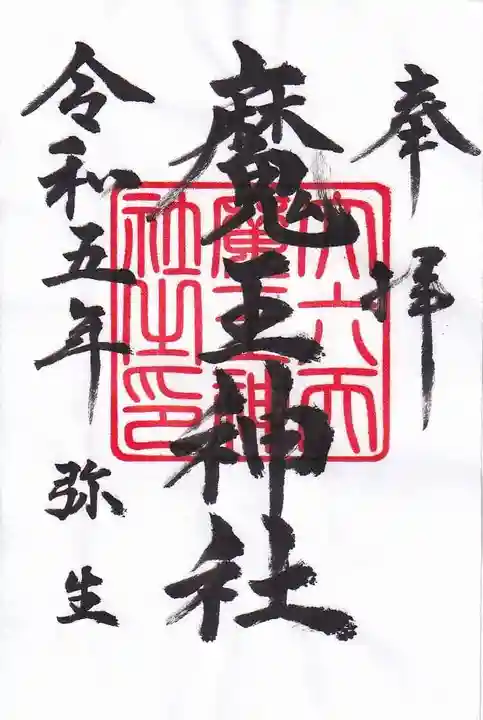 奉拝
魔王神社
令和五年 弥生
第六天
魔王神
社之印